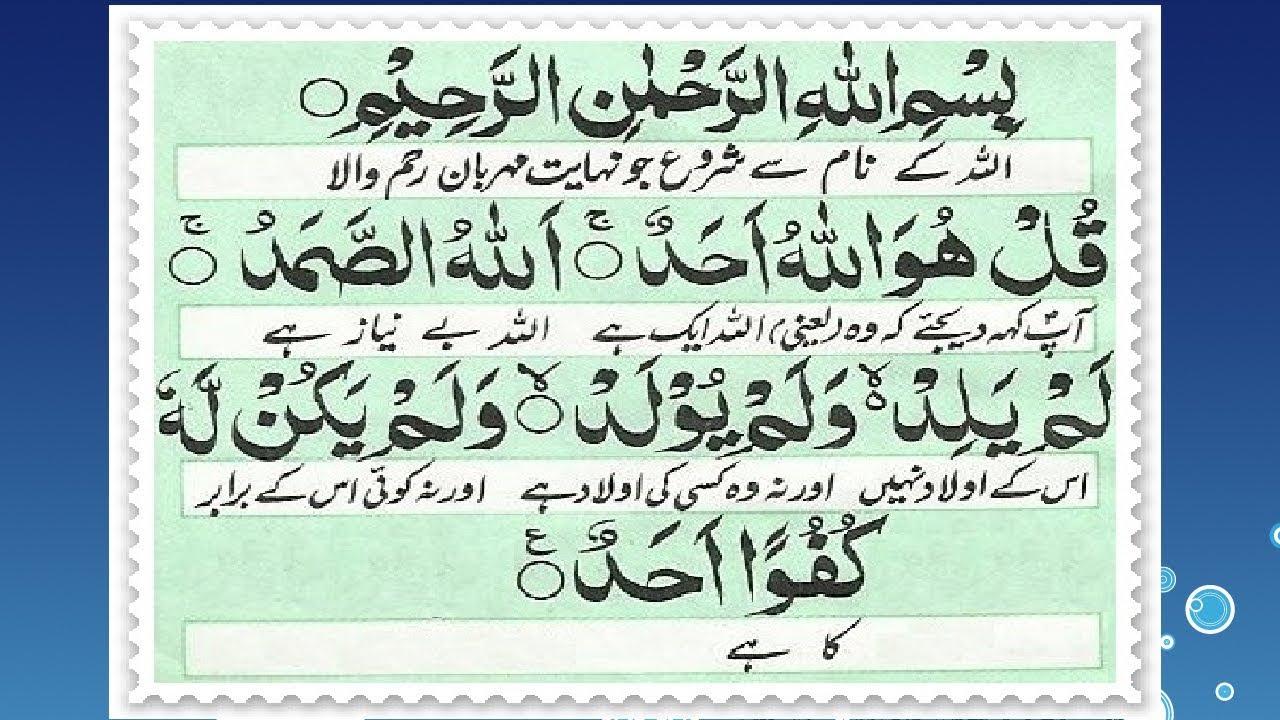 بِسْمِ اللهِ الرَّحْمٰنِ الرَّحِيْمِ ○
اللہ کے نام سے شروع جو نہایت مہربان رحم والا
قُلْ هُوَ اللهُ اَحَدٌ ○ۚ اَللهُ الصَّمَدُ ○ۚ
آپؐ کہہ دیجئے کہ وہ (یعنی) اللہ ایک ہے اللہ بے نیاز ہے
لَمْ يَلِدْ ۙ وَلَمْ يُوْلَدْ ○ۙ وَلَمْ يَكُنْ لَّهٗ
اس کے اولاد نہیں اور نہ وہ کسی کی اولاد ہے اور نہ کوئی اس کے برابر
كُفُوًا اَحَدٌ ○ ع
کا ہے